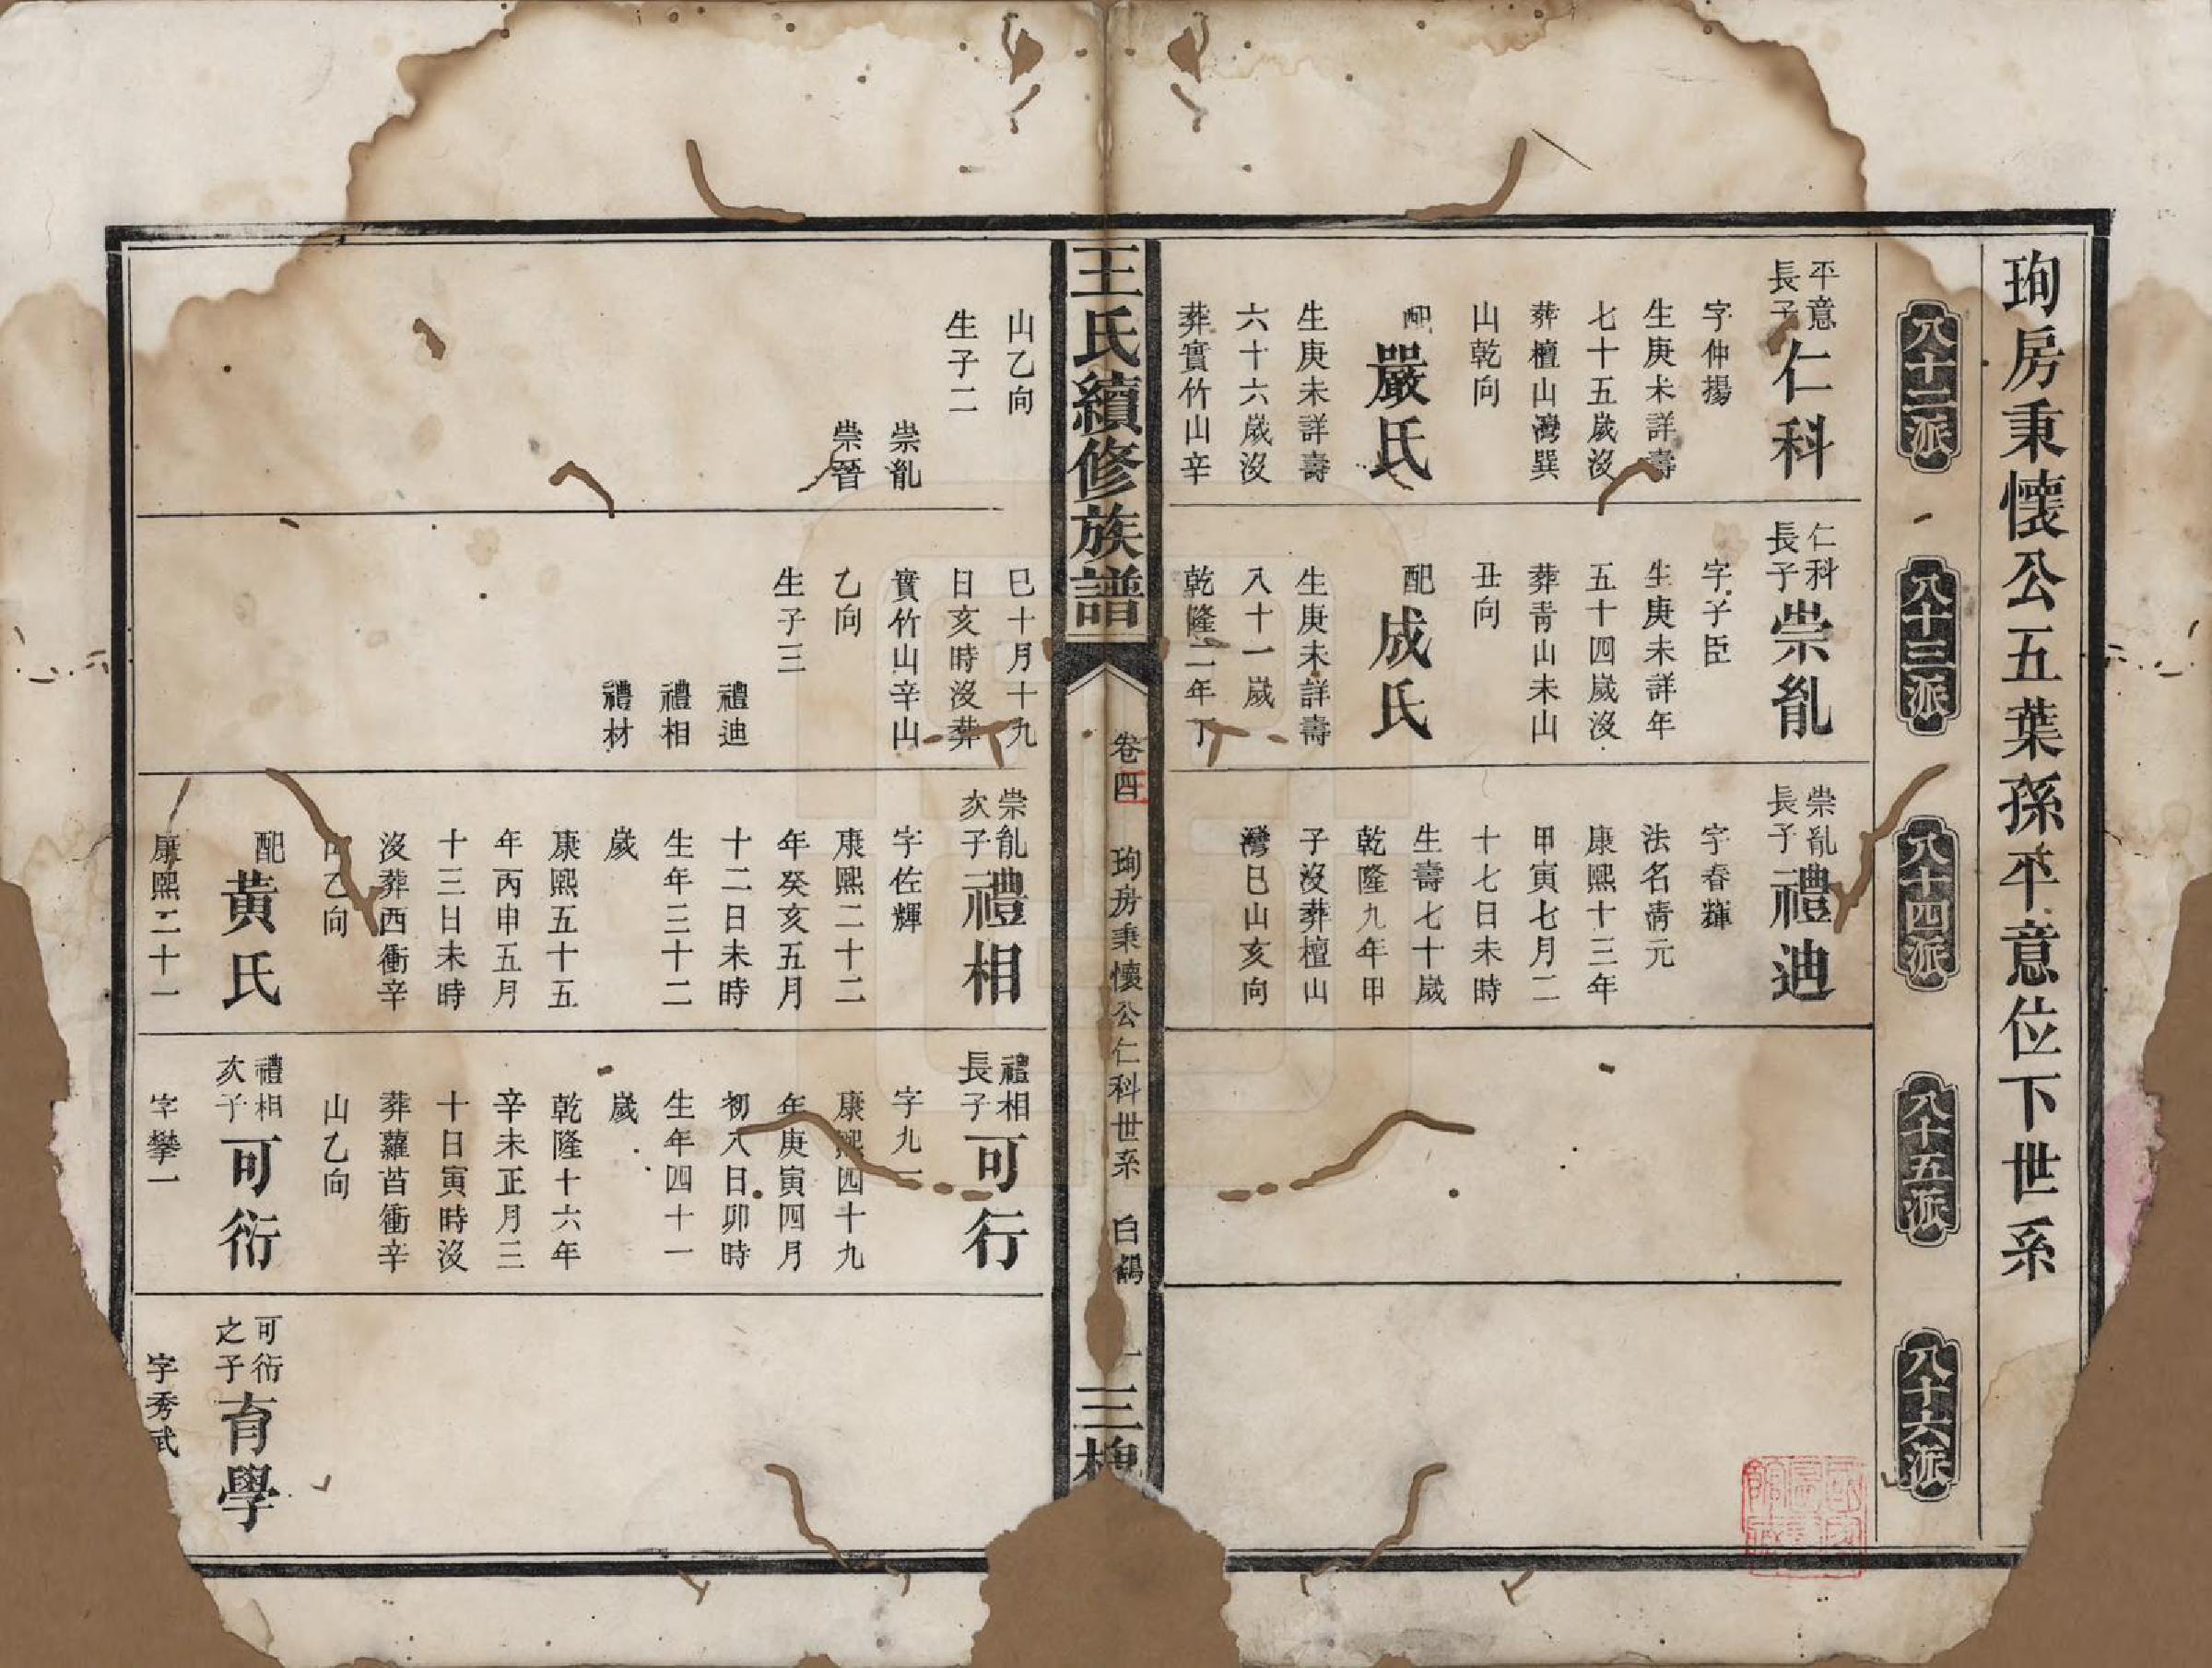 珣房秉懷公五葉孫平意位下世系
八十二派
八十三派
八十四派
八十五派
八十六派
平意
長子
仁科
字仲揚
生庚未詳壽
七十五歲沒
葬檀山灣巽
山乾向
配
嚴氏
生庚未詳壽
六十六歲沒
葬實竹山辛
山乙向
生子二
崇胤
崇晉
仁科
長子
崇胤
字子臣
生庚未詳年
五十四歲沒
葬青山未山
丑向
配
成氏
生庚未詳壽
八十一歲
乾隆二年丁
巳十月十九
日亥時沒葬
實竹山辛山
乙向
生子三
禮迪
禮相
禮材
崇胤
長子
禮迪
字春輝
法名淸元
康熙十三年
甲寅七月二
十七日未時
生壽七十歲
乾隆九年甲
子沒葬檀山
灣巳山亥向
崇胤
次子
禮相
字佐輝
康熙二十二
年癸亥五月
十二日未時
生年三十二
歲
康熙五十五
年丙申五月
十三日未時
沒葬西衝辛
山乙向
配
黃氏
康熙二十一
禮相
長子
可行
字九一
康熙四十九
年庚寅四月
初八日卯時
生年四十一
歲
乾隆十六年
辛未正月三
十日寅時沒
葬蘿苩衝辛
山乙向
禮相
次子
可衍
字攀一
可衍
之子
育學
字秀武
王氏續修族譜
卷四
三
珣房秉懷公仁科世系
白鶴
一
三槐